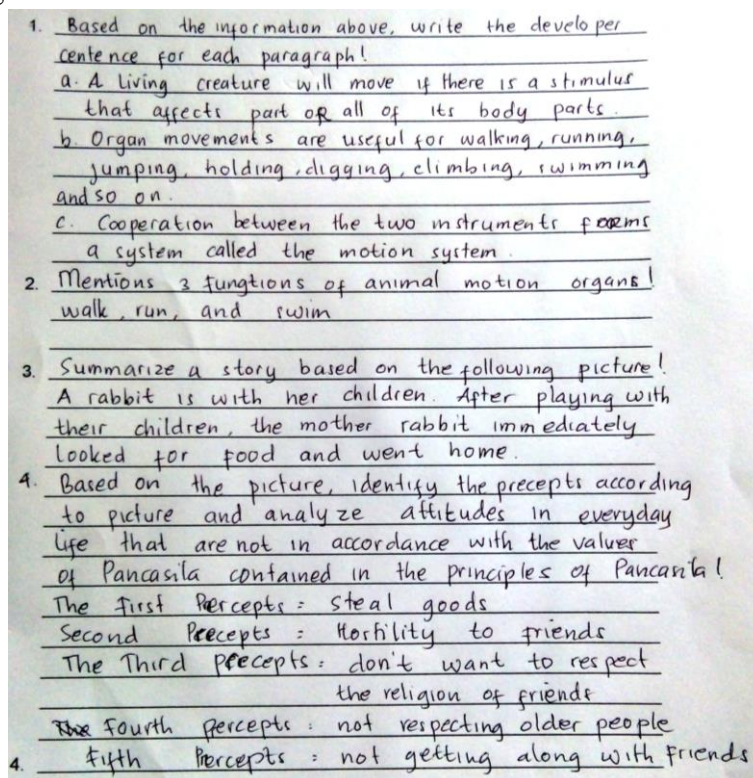 1. Based on the information above, write the developer
centence for each paragraph!
a. A Living creature will move if there is a stimulus
that affects part OR all of its body parts.
b. Organ movements are useful for walking, running,
jumping, holding, digging, climbing, swimming
and so on.
c. Cooperation between the two instruments forms
a system called the motion system.
2. Mentions 3 fungtions of animal motion organs!
walk, run, and swim
3. Summarize a story based on the following picture!
A rabbit is with her children. After playing with
their children, the mother rabbit immediately
looked for food and went home.
4. Based on the picture, identify the precepts according
to picture and analyze attitudes in everyday
Life that are not in accordance with the values
of Pancasila contained in the principles of Pancasila!
The First Percepts : Steal goods
Second Precepts : Hostility to friends
The Third precepts : don't want to respect
the religion of friends
Fourth percepts : not respecting older people
4. Fifth Percepts : not getting along with friends